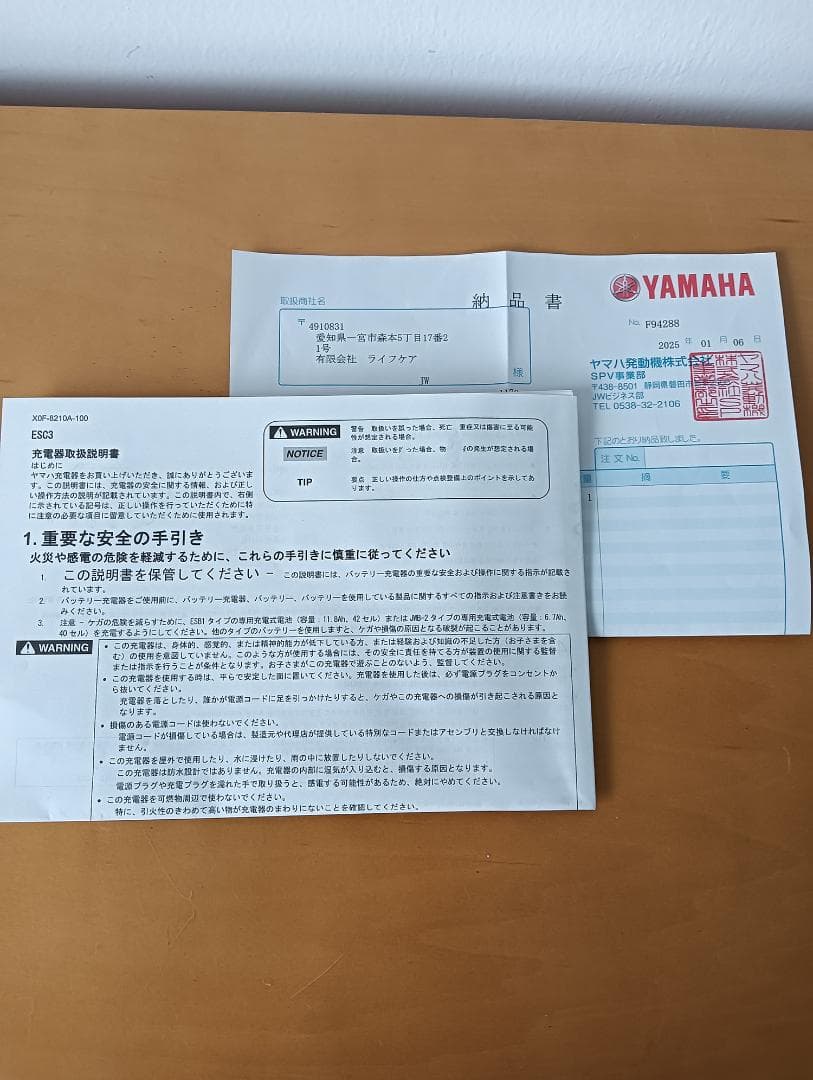 YAMAHA
取扱商社名
納品書
〒4910831
愛知県一宮市森本5丁目17番2
1号
有限会社 ライフケア
様
JW
No. F94288
2025 年 01 月 06 日
ヤマハ発動機株式会社
SPV事業部
〒438-8501 静岡県磐田市
JWビジネス部
TEL 0538-32-2106
下記のとおり納品致しました。
注文 No.
量 摘要
1
X0F-8210A-100
ESC3
充電器取扱説明書
はじめに
ヤマハ充電器をお買い上げいただき、誠にありがとうございま
す。この説明書には、充電器の安全に関する情報、および正し
い操作方法の説明が記載されています。この説明書内で、右側
に示されている記号は、正しい操作を行っていただくために特
に注意の必要な項目に留意していただくために使用されます。
WARNING
警告 取扱いを誤った場合、死亡 重症又は傷害に至る可能
性が想定される場合。
NOTICE
注意 取扱いを した場合、物 の発生が想定される場
合。
TIP
要点 正しい操作の仕方や点検整備上のポイントを示してあ
ります。
1. 重要な安全の手引き
火災や感電の危険を軽減するために、これらの手引きに慎重に従ってください
1. この説明書を保管してください － この説明書には、バッテリー充電器の重要な安全および操作に関する指示が記載さ
れています。
2. バッテリー充電器をご使用前に、バッテリー充電器、バッテリー、バッテリーを使用している製品に関するすべての指示および注意書きをお読
みください。
3. 注意 - ケガの危険を減らすために、ESB1 タイプの専用充電式電池（容量：11.8Ah、42 セル）または JWB-2タイプの専用充電式電池（容量：6.7Ah、
40 セル）を充電するようにしてください。他のタイプのバッテリーを使用しますと、ケガや損傷の原因となる破裂が起こることがあります。
WARNING
• この充電器は、身体的、感覚的、または精神的能力が低下している方、または経験および知識の不足した方（お子さまを含
む）の使用を意図していません。このような方が使用する場合には、その安全に責任を持てる方が装置の使用に関する監督
または指示を行うことが条件となります。お子さまがこの充電器で遊ぶことのないよう、監督してください。
• この充電器を使用する時は、平らで安定した面に置いてください。充電器を使用した後は、必ず電源プラグをコンセントか
ら抜いてください。
充電器を落としたり、誰かが電源コードに足を引っかけたりすると、ケガやこの充電器への損傷が引き起こされる原因と
なります。
• 損傷のある電源コードは使わないでください。
電源コードが損傷している場合は、製造元や代理店が提供している特別なコードまたはアセンブリと交換しなければなけ
ません。
• この充電器を屋外で使用したり、水に浸けたり、雨の中に放置したりしないでください。
この充電器は防水設計ではありません。充電器の内部に湿気が入り込むと、損傷する原因となります。
電源プラグや充電プラグを濡れた手で取り扱うと、感電する可能性があるため、絶対にやめてください。
• この充電器を可燃物周辺で使わないでください。
特に、引火性のきわめて高い物が充電器のまわりにないことを確認してください。